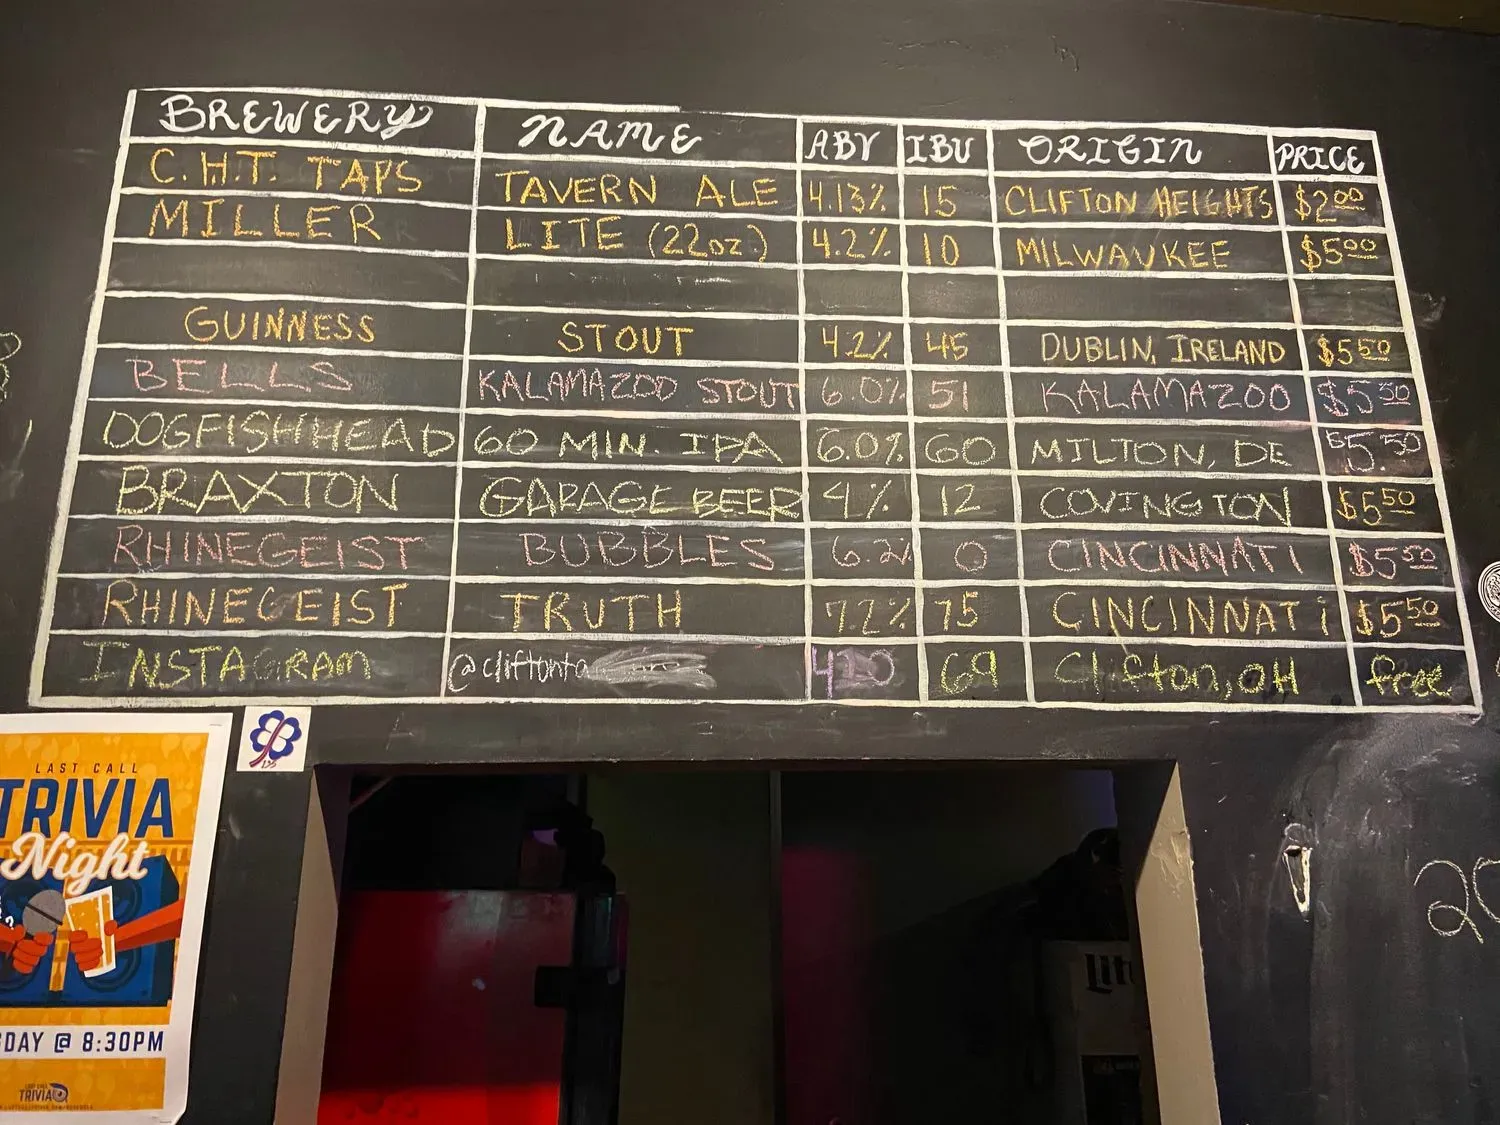 BREWERY NAME ABV IBU ORIGIN PRICE
C.H.T. TAPS TAVERN ALE 4.13% 15 CLIFTON HEIGHTS $2.00
MILLER LITE (22oz) 4.2% 10 MILWAUKEE $5.00
GUINNESS STOUT 4.2% 45 DUBLIN, IRELAND $5.50
BELLS KALAMAZOO STOUT 6.0% 51 KALAMAZOO $5.50
DOGFISHHEAD 60 MIN. IPA 6.0% 60 MILTON, DE $5.50
BRAXTON GARAGE BEER 4% 12 COVINGTON $5.50
RHINEGEIST BUBBLES 6.2% 0 CINCINNATI $5.50
RHINEGEIST TRUTH 7.2% 75 CINCINNATi $5.50
INSTAGRAM @cliftonta 420 69 Clifton, OH free
LAST CALL
TRIVIA
Night
DAY @ 8:30PM
LAST CALL
TRIVIA
Lit